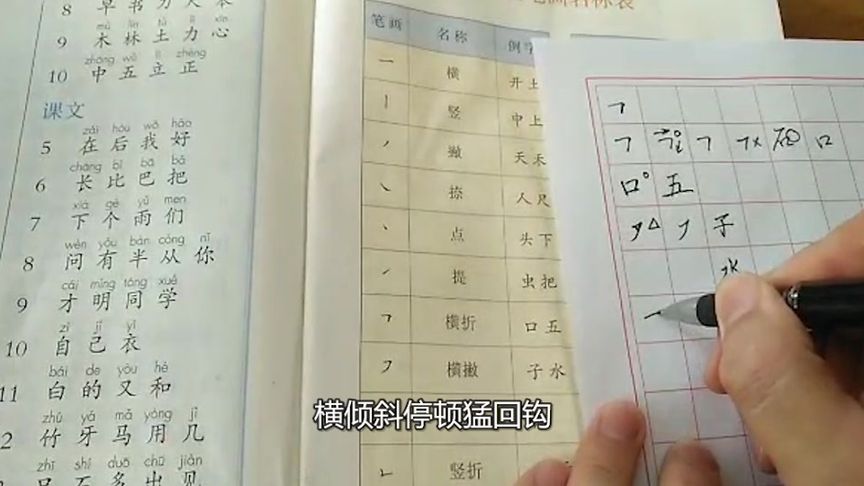 8 草 书 刀 大 本
mù lín tǔ lì xīn
9 木 林 土 力 心
zhōng wǔ lì zhèng
10 中 五 立 正
课文
zài hòu wǒ hǎo
5 在 后 我 好
cháng bǐ bā bǎ
6 长 比 巴 把
xià gè yǔ men
7 下 个 雨 们
wèn yǒu bàn cóng nǐ
8 问 有 半 从 你
cái míng tóng xué
9 才 明 同 学
zì jǐ yī
10 自 己 衣
bái de yòu hé
11 白 的 又 和
zhú yá mǎ yòng jǐ
2 竹 牙 马 用 几
zhǐ shí duō chū jiàn
只 石 多 出 见
名称表
笔画 名称 例字
一 横 开 土
丨 竖 中 上
丿 撇 天 禾
㇏ 捺 人 尺
丶 点 头 下
㇀ 提 虫 把
𠃍 横折 口 五
㇇ 横撇 子 水
竖折
口 五
子
水
横倾斜停顿猛回钩